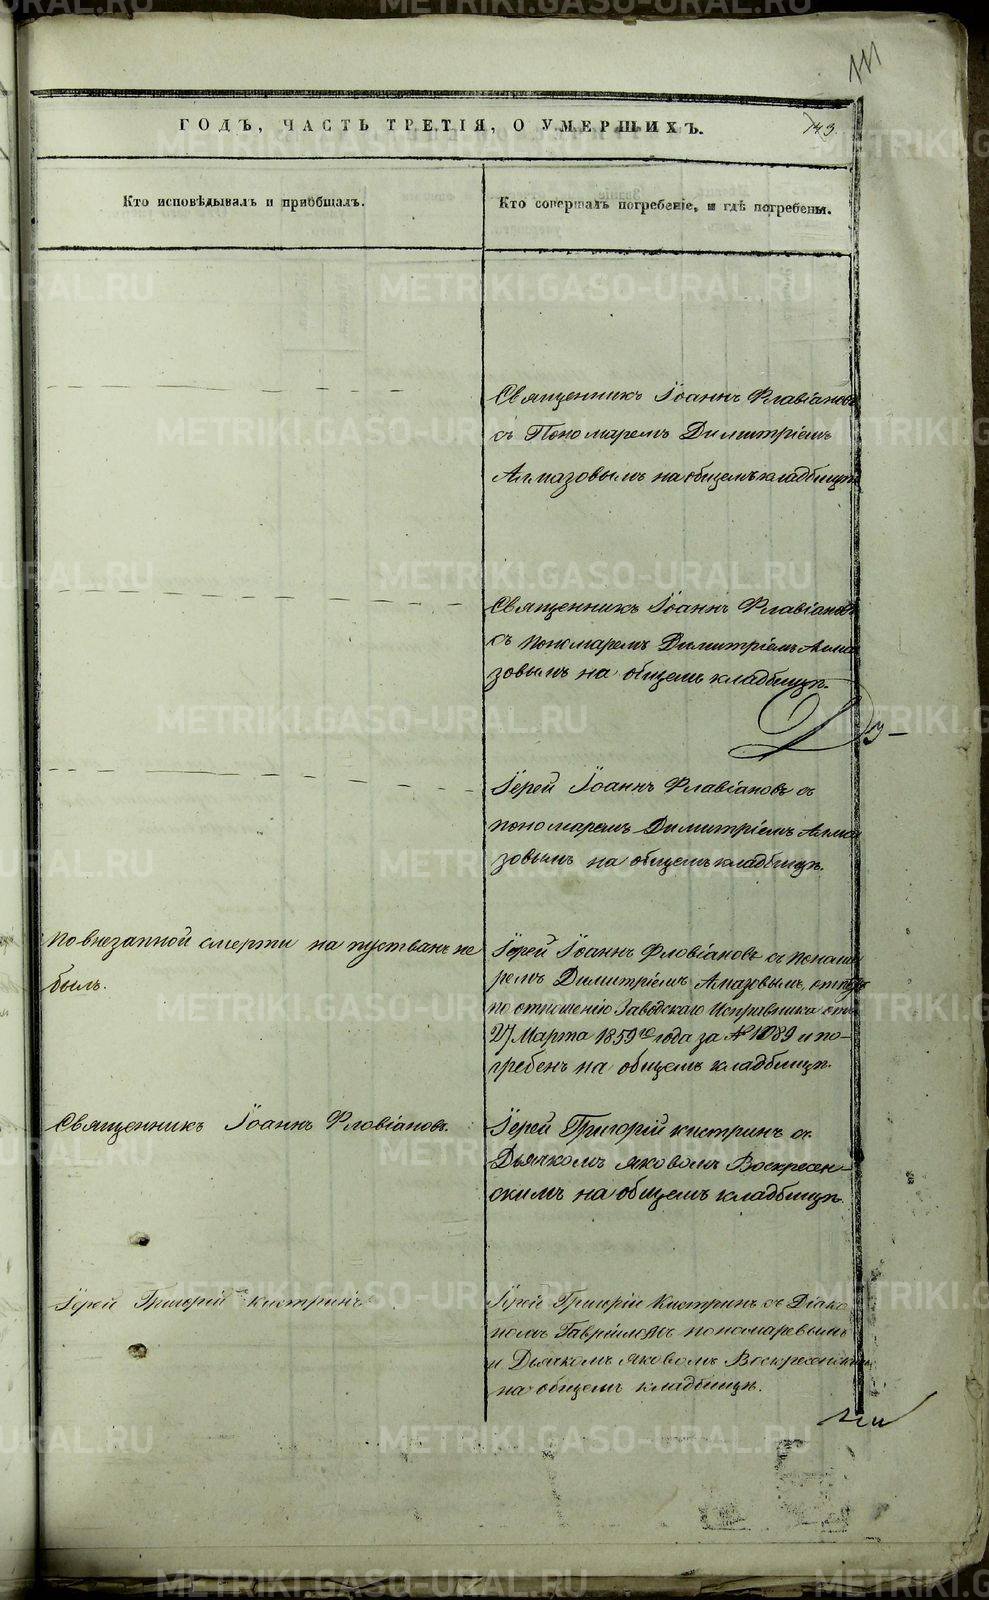 111
ГОДЪ, ЧАСТЬ ТРЕТІЯ, О УМЕРШИХЪ.
143.
Кто исповѣдывалъ и пріобщалъ.
Кто совершалъ погребеніе, и гдѣ погребены.
Священникъ Іоаннъ Флавіановъ
съ Пономаремъ Димитріемъ
Алмазовымъ на общемъ кладбищѣ
Священникъ Іоаннъ Флавіановъ
съ пономаремъ Димитріемъ Алма
зовымъ на общемъ кладбищѣ.
Іерей Іоаннъ Флавіановъ съ
пономаремъ Димитріемъ Алма
зовымъ на общемъ кладбищѣ.
По внезапной смерти на пустванъ не
былъ.
Іерей Іоаннъ Фловіановъ съ понама
ремъ Димитріемъ Амазовымъ, отпѣтъ
по отношенію Заводскаго Исправника отъ
27 Марта 1859го года за № 1089 и по-
гребенъ на общемъ кладбищѣ.
Священникъ Іоаннъ Фловіановъ.
Іерей Григорій Кистринъ съ
Дьячкомъ Яковомъ Воскресен-
скимъ на общемъ кладбищѣ.
Іерей Григорій Кистринъ
Іерей Григорій Кистринъ съ Діако
номъ Гавріиломъ пономаревымъ
и Дьячкомъ Яковомъ Воскресенскимъ
на общемъ кладбищѣ.
METRIKI.GASO-URAL.RU